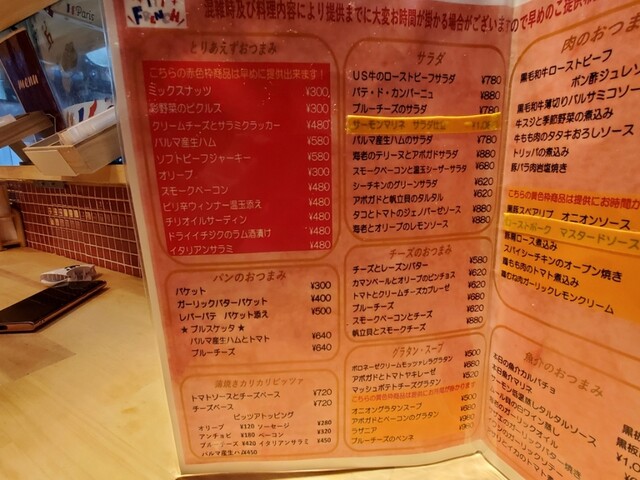 Paris
MENU
混雑時及び料理内容により提供までに大変お時間が掛かる場合がございますので早めのご提供
とりあえずおつまみ
こちらの赤色枠商品は早めに提供出来ます!
ミックスナッツ ¥300
彩野菜のピクルス ¥300
クリームチーズとサラミクラッカー ¥480
パルマ産生ハム ¥580
ソフトビーフジャーキー ¥580
オリーブ ¥300
スモークベーコン ¥480
ピリ辛ウィンナー温玉添え ¥480
チリオイルサーディン ¥480
ドライイチジクのラム酒漬け ¥480
イタリアンサラミ ¥480
パンのおつまみ
バケット ¥300
ガーリックバターバケット ¥400
レバーパテ バケット添え ¥500
★ブルスケッタ★
パルマ産生ハムとトマト ¥640
ブルーチーズ ¥640
カリカリピッツァ
トマトソースとチーズベース ¥720
チーズベース ¥720
ピッツァトッピング
オリーブ ¥120 ソーセージ ¥280
アンチョビ ¥180 ベーコン ¥320
ブルーチーズ ¥420 イタリアンサラミ ¥450
パルマ産生ハム ¥450
サラダ
US牛のローストビーフサラダ ¥780
パテ・ド・カンパーニュ ¥880
ブルーチーズのサラダ ¥780
サーモンマリネ サラダ仕立
パルマ産生ハムのサラダ ¥780
海老のテリーヌとアボガドサラダ ¥880
スモークベーコンと温玉シーザーサラダ ¥680
シーチキンのグリーンサラダ ¥620
アボガドと帆立貝のタルタル ¥620
タコとトマトのジェノバーゼソース ¥880
海老とオリーブのレモンソース ¥880
チーズのおつまみ
チーズとレーズンバター ¥580
カマンベールとオリーブのピンチョス ¥620
トマトとクリームチーズカプレーゼ ¥620
ブルーチーズ ¥620
スモークベーコンとチーズ ¥680
帆立貝とスモークチーズ ¥880
グラタン・スープ
ボロネーゼクリームモッツァレラグラタン ¥500
アボガドとトマトヤキレーゼ ¥680
マッシュポテトチーズグラタン ¥520
こちらの黄色枠商品は提供にお時間が掛かります
オニオングラタンスープ ¥500
アボガドとベーコンのグラタン ¥680
ラザニア ¥960
ブルーチーズのペンネ ¥960
肉のおつまみ
黒毛和牛ローストビーフ
ポン酢ジュレソ
黒毛和牛薄切りバルサミコソー
牛スジと季節野菜の煮込み
牛もも肉のタタキおろしソース
トリッパの煮込み
豚バラ肉岩塩焼き
こちらの黄色枠商品は提供にお時間が
豚スペアリブ オニオンソース
ローストポーク マスタードソース
豚肩ロース煮込み
スパイシーチキンのオーブン焼き
鶏もも肉のトマト煮込み
鶏むね肉ガーリックレモンクリーム
魚介のおつまみ
本日の魚介カルパッチョ
本日魚介マリネ